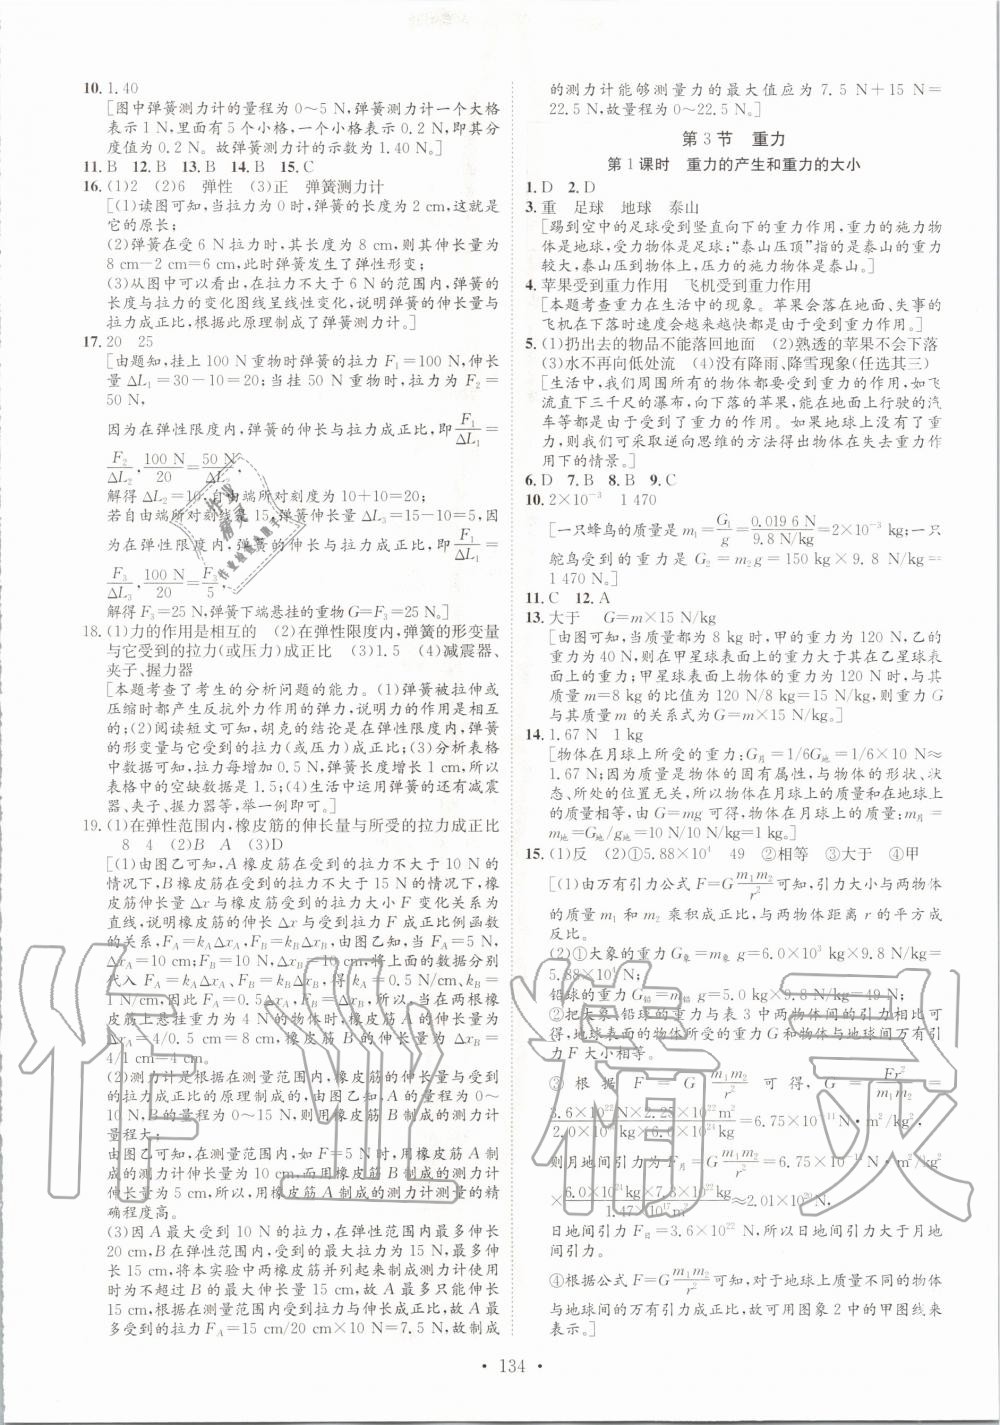 10. 1.40
[图中弹簧测力计的量程为 0～5 N,弹簧测力计一个大格
表示 1 N,里面有 5 个小格,一个小格代表 0.2 N,即其分
度值为 0.2 N。故弹簧测力计的示数为 1.40 N。]
11. B 12. B 13. B 14. B 15. C
16. (1)2 (2)6 弹性 (3)正 弹簧测力计
[(1)读图可知,当拉力为 0 时,弹簧的长度为 2 cm,这就是
它的原长;
(2)弹簧在受 6 N 拉力时,其长度为 8 cm,则其伸长量为
8 cm－2 cm＝6 cm,此时弹簧发生了弹性形变;
(3)从图中可以看出,在拉力不大于 6 N 的范围内,弹簧的
长度与拉力的变化图线呈线性变化,说明弹簧的伸长量与
拉力成正比,根据此原理制成了弹簧测力计。]
17. 20 25
[由题知,挂上 100 N 重物时弹簧的拉力 F₁＝100 N,伸长
量 ΔL₁＝30－10＝20;当挂 50 N 重物时,拉力为 F₂＝
50 N,
因为在弹性限度内,弹簧的伸长与拉力成正比,即 F₁/ΔL₁＝
F₂/ΔL₂,100 N/20＝50 N/ΔL₂,
解得 ΔL₂＝10,自由端所对刻度为 10＋10＝20;
若自由端所对刻线是 15,弹簧伸长量 ΔL₃＝15－10＝5,因
为在弹性限度内,弹簧的伸长与拉力成正比,即 F₁/ΔL₁＝
F₃/ΔL₃,100 N/20＝F₃/5,
解得 F₃＝25 N,弹簧下端悬挂的重物 G＝F₃＝25 N。]
18. (1)力的作用是相互的 (2)在弹性限度内,弹簧的形变量
与它受到的拉力(或压力)成正比 (3)1.5 (4)减震器、
夹子、握力器
[本题考查了考生的分析问题的能力。(1)弹簧被拉伸或
压缩时都产生反抗外力作用的弹力,说明力的作用是相互
的;(2)阅读短文可知,胡克的结论是在弹性限度内,弹簧
的形变量与它受到的拉力(或压力)成正比;(3)分析表格
中数据可知,拉力每增加 0.5 N,弹簧长度增长 1 cm,所以
表格中的空缺数据是 1.5;(4)生活中运用弹簧的还有减震
器、夹子、握力器等,举一例即可。]
19. (1)在弹性范围内,橡皮筋的伸长量与所受的拉力成正比
8 4 (2)B A (3)D
[(1)由图乙可知,A 橡皮筋在受到的拉力不大于 10 N 的
情况下,B 橡皮筋在受到的拉力不大于 15 N 的情况下,橡
皮筋伸长量 Δx 与受到的拉力大小 F 变化关系为
直线,说明橡皮筋的伸长 Δx 与受到拉力 F 成正比例函数
的关系,F_A＝k_AΔx_A、F_B＝k_BΔx_B,由图乙知,当 F_A＝5 N,
Δx_A＝10 cm;F_B＝10 N,Δx_B＝10 cm,将上面的数据分别
代入 F_A＝k_AΔx_A、F_B＝k_BΔx_B,得 k_A＝0.5 N/cm、k_B＝
1 N/cm,因此 F_A＝0.5Δx_A、F_B＝Δx_B,所以,当在两根橡
皮筋上悬挂重力为 4 N 的物体时,橡皮筋 A 的伸长量为
Δx_A＝4/0.5 cm＝8 cm,橡皮筋 B 的伸长量为 Δx_B＝
4/1 cm＝4 cm。
(2)测力计是根据在测量范围内,橡皮筋的伸长量与受到
的拉力成正比的原理制成的,由图乙知,A 的量程为 0～
10 N,B 的量程为 0～15 N,则用橡皮筋 B 制成的测力计
量程大;
由图乙可知,在测量范围内,如 F＝5 N 时,用橡皮筋 A 制
成的测力计伸长量为 10 cm,而用橡皮筋 B 制成的测力计
伸长量为 5 cm,所以,用橡皮筋 A 制成的测力计测量的精
确程度高。
(3)因 A 最大受到 10 N 的拉力,在弹性范围内最多伸长
20 cm,B 在弹性范围内,受到的最大拉力为 15 N,最多伸
长 15 cm,将本实验中两根橡皮筋并列起来制成测力计使用
时为不超过 B 的最大伸长量 15 cm,故 A 最多只能伸长
15 cm,根据在测量范围内伸长量与拉力成正比,故 A 最
多受到的拉力 F_A＝15 cm/20 cm×10 N＝7.5 N,故制成
的测力计能够测量力的最大值应为 7.5 N＋15 N＝
22.5 N,故量程为 0～22.5 N。]
第 3 节 重力
第 1 课时 重力的产生和重力的大小
1. D 2. D
3. 重 足球 地球 泰山
[踢到空中的足球受到竖直向下的重力作用,重力的施力物
体是地球,受力物体是足球;“泰山压顶”指的是泰山的重力
较大,泰山压到物体上,压力的施力物体是泰山。]
4. 苹果受到重力作用 飞机受到重力作用
[本题考查重力在生活中的现象。苹果会落在地面、失事的
飞机在下落时速度会越来越快都是由于受到重力作用。]
5. (1)扔出去的物品不能落回地面 (2)熟透的苹果不会下落
(3)水不再向低处流 (4)没有降雨、降雪现象(任选其三)
[生活中,我们周围所有的物体都要受到重力的作用,如飞
流直下三千尺的瀑布,向下落的苹果,能在地面上行驶的汽
车等都是由于受到了重力的作用。如果地球上没有了重
力,则我们可采取逆向思维的方法得出物体在失去重力作
用下的情景。]
6. D 7. B 8. B 9. C
10. 2×10⁻³ 1 470
[一只蜂鸟的质量是 m₁＝G₁/g＝0.019 6 N/9.8 N/kg＝2×10⁻³ kg;一只
鸵鸟受到的重力是 G₂＝m₂g＝150 kg×9.8 N/kg＝
1 470 N。]
11. C 12. A
13. 大于 G＝m×15 N/kg
[由图可知,当质量都为 8 kg 时,甲的重力为 120 N,乙的
重力为 40 N,则在甲星球表面上的重力大于在乙星球表
面上的重力;甲星球表面上物体的重力为 120 N 时,与其
质量 m＝8 kg 的比值为 120 N/8 kg＝15 N/kg,则重力 G
与其质量 m 的关系式为 G＝m×15 N/kg。]
14. 1.67 N 1 kg
[物体在月球上所受的重力:G月＝1/6G地＝1/6×10 N≈
1.67 N;因为质量是物体的固有属性,与物体的形状、状
态、所处的位置无关,所以物体在月球上的质量和在地球上
质量相等,由 G＝mg 可得,物体在月球上的质量:m月＝
m地＝G地/g地＝10 N/10 N/kg＝1 kg。]
15. (1)反 (2)①5.88×10⁴ 49 ②相等 ③大于 ④甲
[(1)由万有引力公式 F＝G m₁m₂/r² 可知,引力大小与两物体
的质量 m₁ 和 m₂ 乘积成正比,与两物体距离 r 的平方成
反比。
(2)①大象的重力 G象＝m象 g＝6.0×10³ kg×9.8 N/kg＝
5.88×10⁴ N,
铅球的重力 G铅＝m铅 g＝5.0 kg×9.8 N/kg＝49 N;
②把大象、铅球的重力与表 3 中两物体间的引力相比可
得,地球表面的物体所受的重力 G 和物体与地球间万有引
力 F 大小相等。
③根据 F＝G m₁m₂/r² 可得,G＝Fr²/m₁m₂＝
3.6×10²² N×2.25×10²² m²/2.0×10³⁰ kg×6.0×10²⁴ kg＝6.75×10⁻¹¹ N·m²/kg²,
则月地间引力为 F月＝G m₁m₂/r²＝6.75×10⁻¹¹ N·m²/kg²
×6.0×10²⁴ kg×7.3×10²² kg/1.47×10¹⁷ m²≈2.01×10²⁰ N,
日地间引力 F日＝3.6×10²² N,所以日地间引力大于月地
间引力。
④根据公式 F＝G m₁m₂/r² 可知,对于地球上质量不同的物体
与地球间的万有引力成正比,故可用图象 2 中的甲图线来
表示。]
· 134 ·
作业精灵